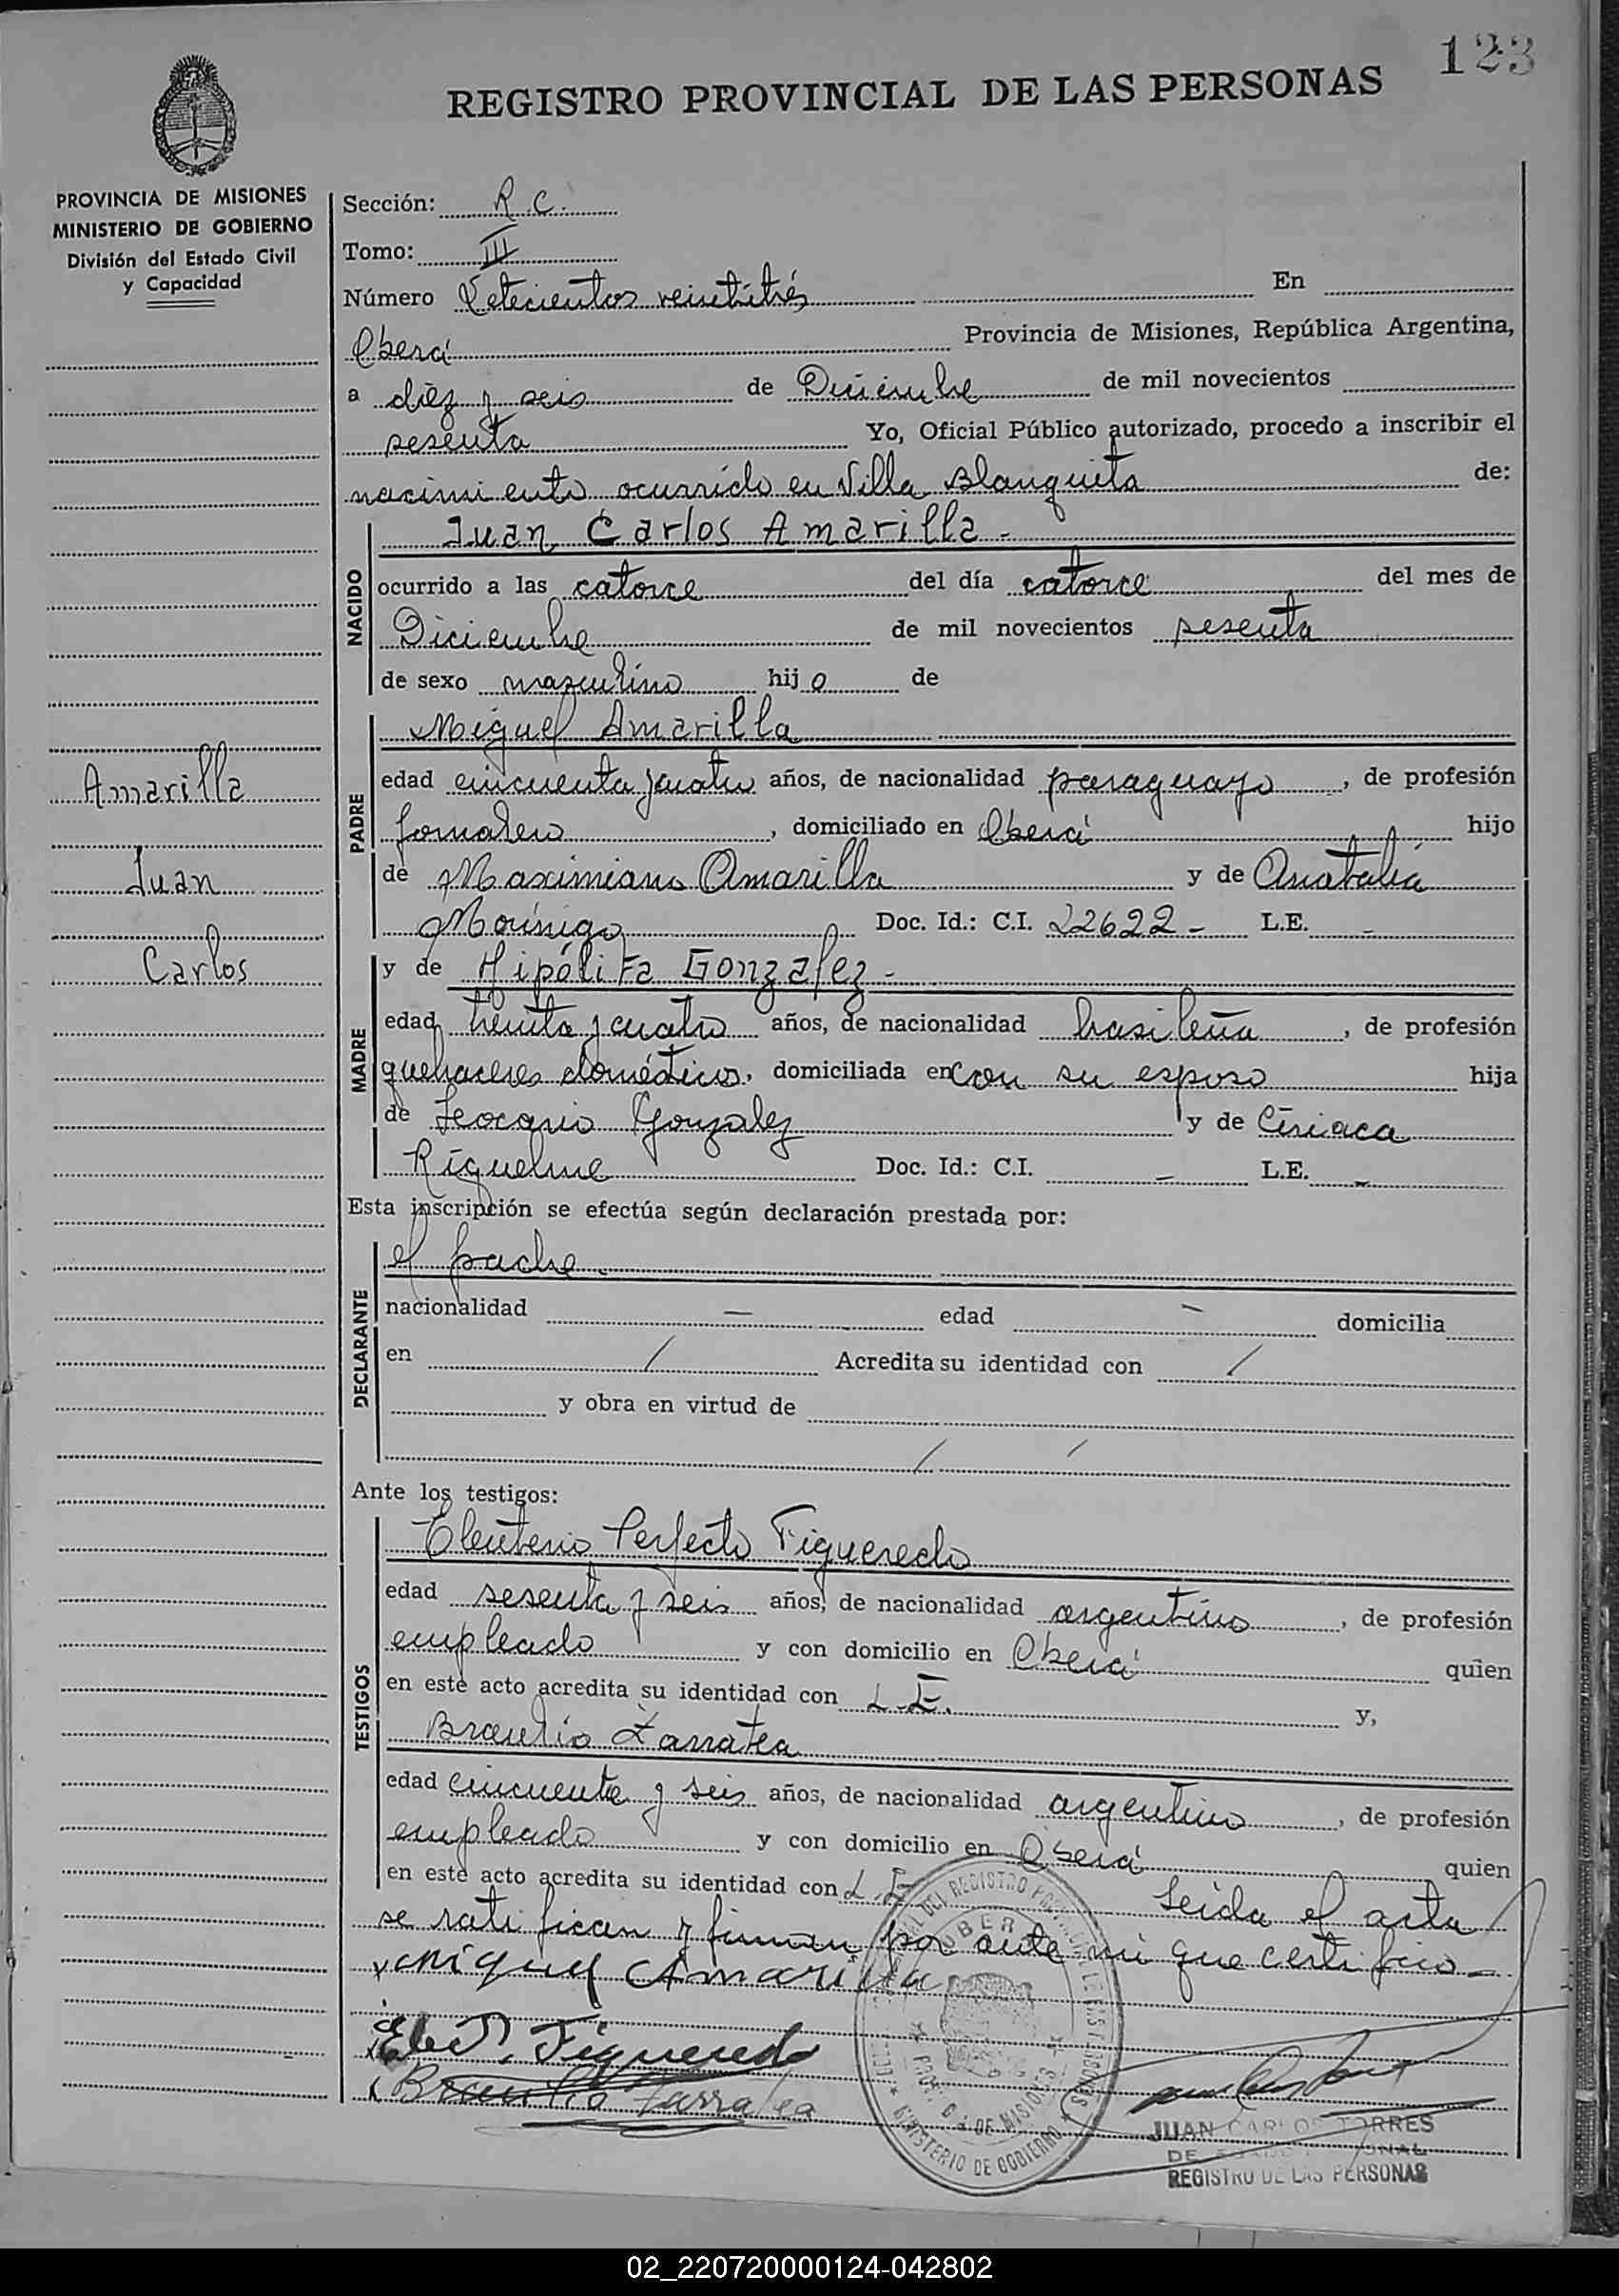 123
REGISTRO PROVINCIAL DE LAS PERSONAS
PROVINCIA DE MISIONES
MINISTERIO DE GOBIERNO
División del Estado Civil
y Capacidad
Sección: R.C.
Tomo: III
Número Setecientos veintitrés En
Oberá Provincia de Misiones, República Argentina,
a diez y seis de Diciembre de mil novecientos
sesenta Yo, Oficial Público autorizado, procedo a inscribir el
nacimiento ocurrido en Villa Blanquita de:
NACIDO
Juan Carlos Amarilla -
ocurrido a las catorce del día catorce del mes de
Diciembre de mil novecientos sesenta
de sexo masculino hijo de
PADRE
Miguel Amarilla
edad cincuenta y cuatro años, de nacionalidad paraguayo, de profesión
jornalero, domiciliado en Oberá hijo
de Maximiano Amarilla y de Anatalia
Morínigo Doc. Id.: C.I. 22622 - L.E. -
MADRE
y de Hipólita Gonzalez -
edad treinta y cuatro años, de nacionalidad brasileña, de profesión
quehaceres domésticos, domiciliada en con su esposo hija
de Gonzalez y de Ciriaca
Riquelme Doc. Id.: C.I. - L.E. -
Amarilla
Juan
Carlos
Esta inscripción se efectúa según declaración prestada por:
DECLARANTE
el padre.
nacionalidad — edad - domicilia
en / Acredita su identidad con /
y obra en virtud de
/ /
Ante los testigos:
TESTIGOS
Eleuterio Perfecto Figueredo
edad sesenta y seis años, de nacionalidad argentino, de profesión
empleado y con domicilio en Oberá quien
en este acto acredita su identidad con L.E. y,
Braulio Zarratea
edad cincuenta y seis años, de nacionalidad argentino, de profesión
empleado y con domicilio en Oberá quien
en este acto acredita su identidad con L.E. Leída el acta
se ratifican y firman por ante mi que certifico -
x Miguel Amarilla
Figueredo
x Braulio Zarratea
MINISTERIO DE GOBIERNO
JUAN CARLOS TORRES
REGISTRO DE LAS PERSONAS
02_220720000124-042802